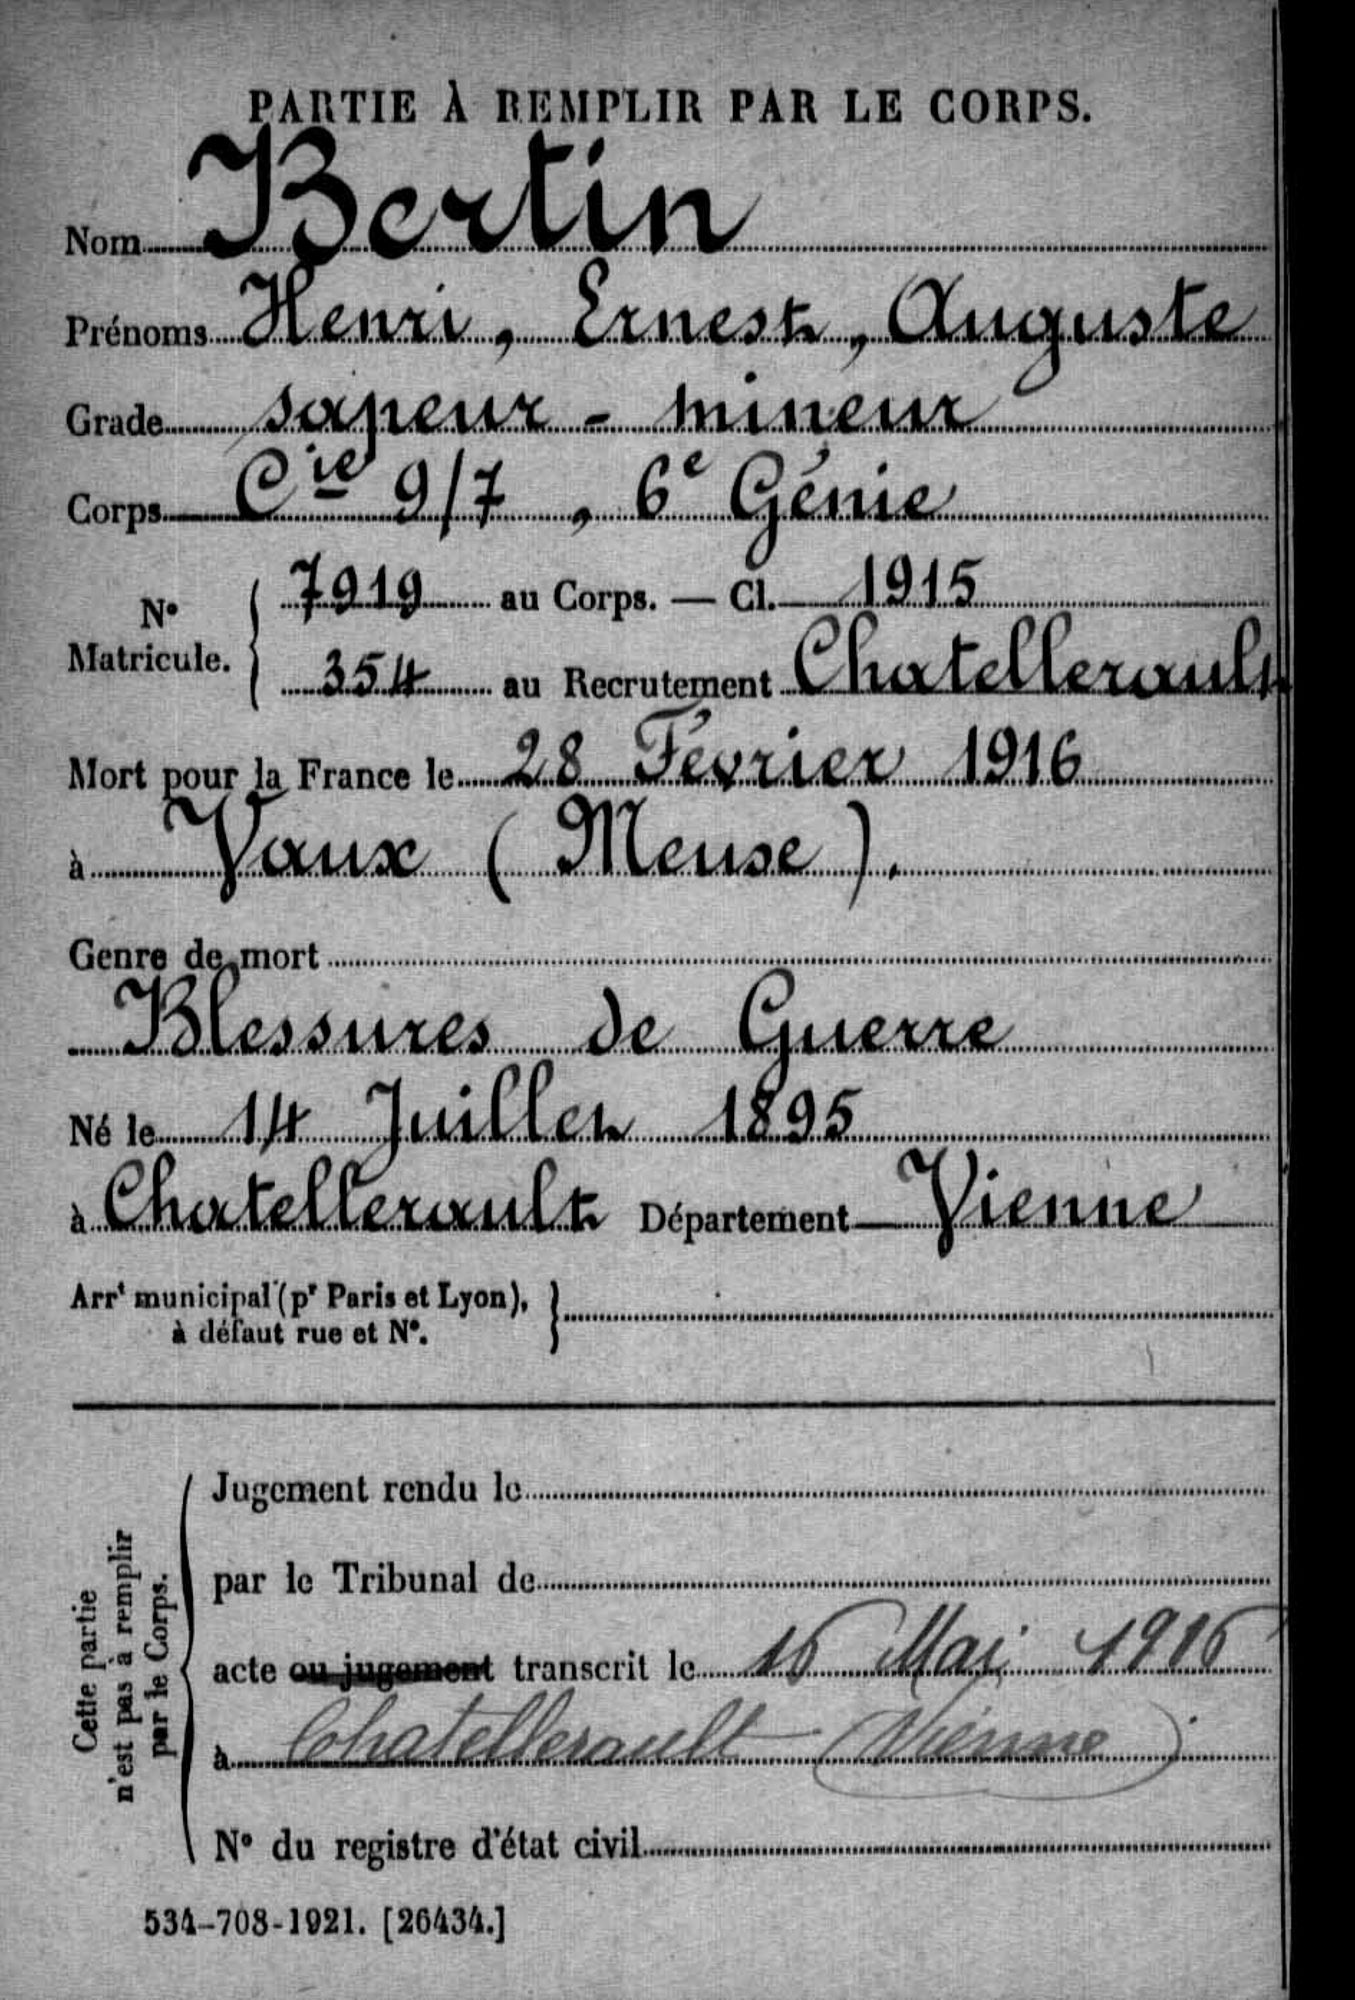 PARTIE À REMPLIR PAR LE CORPS.
Nom Bertin
Prénoms Henri, Ernest, Auguste
Grade sapeur - mineur
Corps Cie 9/7, 6e Génie
N° Matricule. { 7919 au Corps. — Cl. 1915
354 au Recrutement Chatellerault
Mort pour la France le 28 Février 1916
à Vaux (Meuse).
Genre de mort
Blessures de Guerre
Né le 14 Juillet 1895
à Chatellerault Département Vienne
Arrt municipal (pr Paris et Lyon), }
à défaut rue et N°.
Cette partie
n'est pas à remplir
par le Corps.
Jugement rendu le
par le Tribunal de
acte ou jugement transcrit le 16 Mai 1916
à Chatellerault (Vienne)
N° du registre d'état civil
534-708-1921. [26434.]